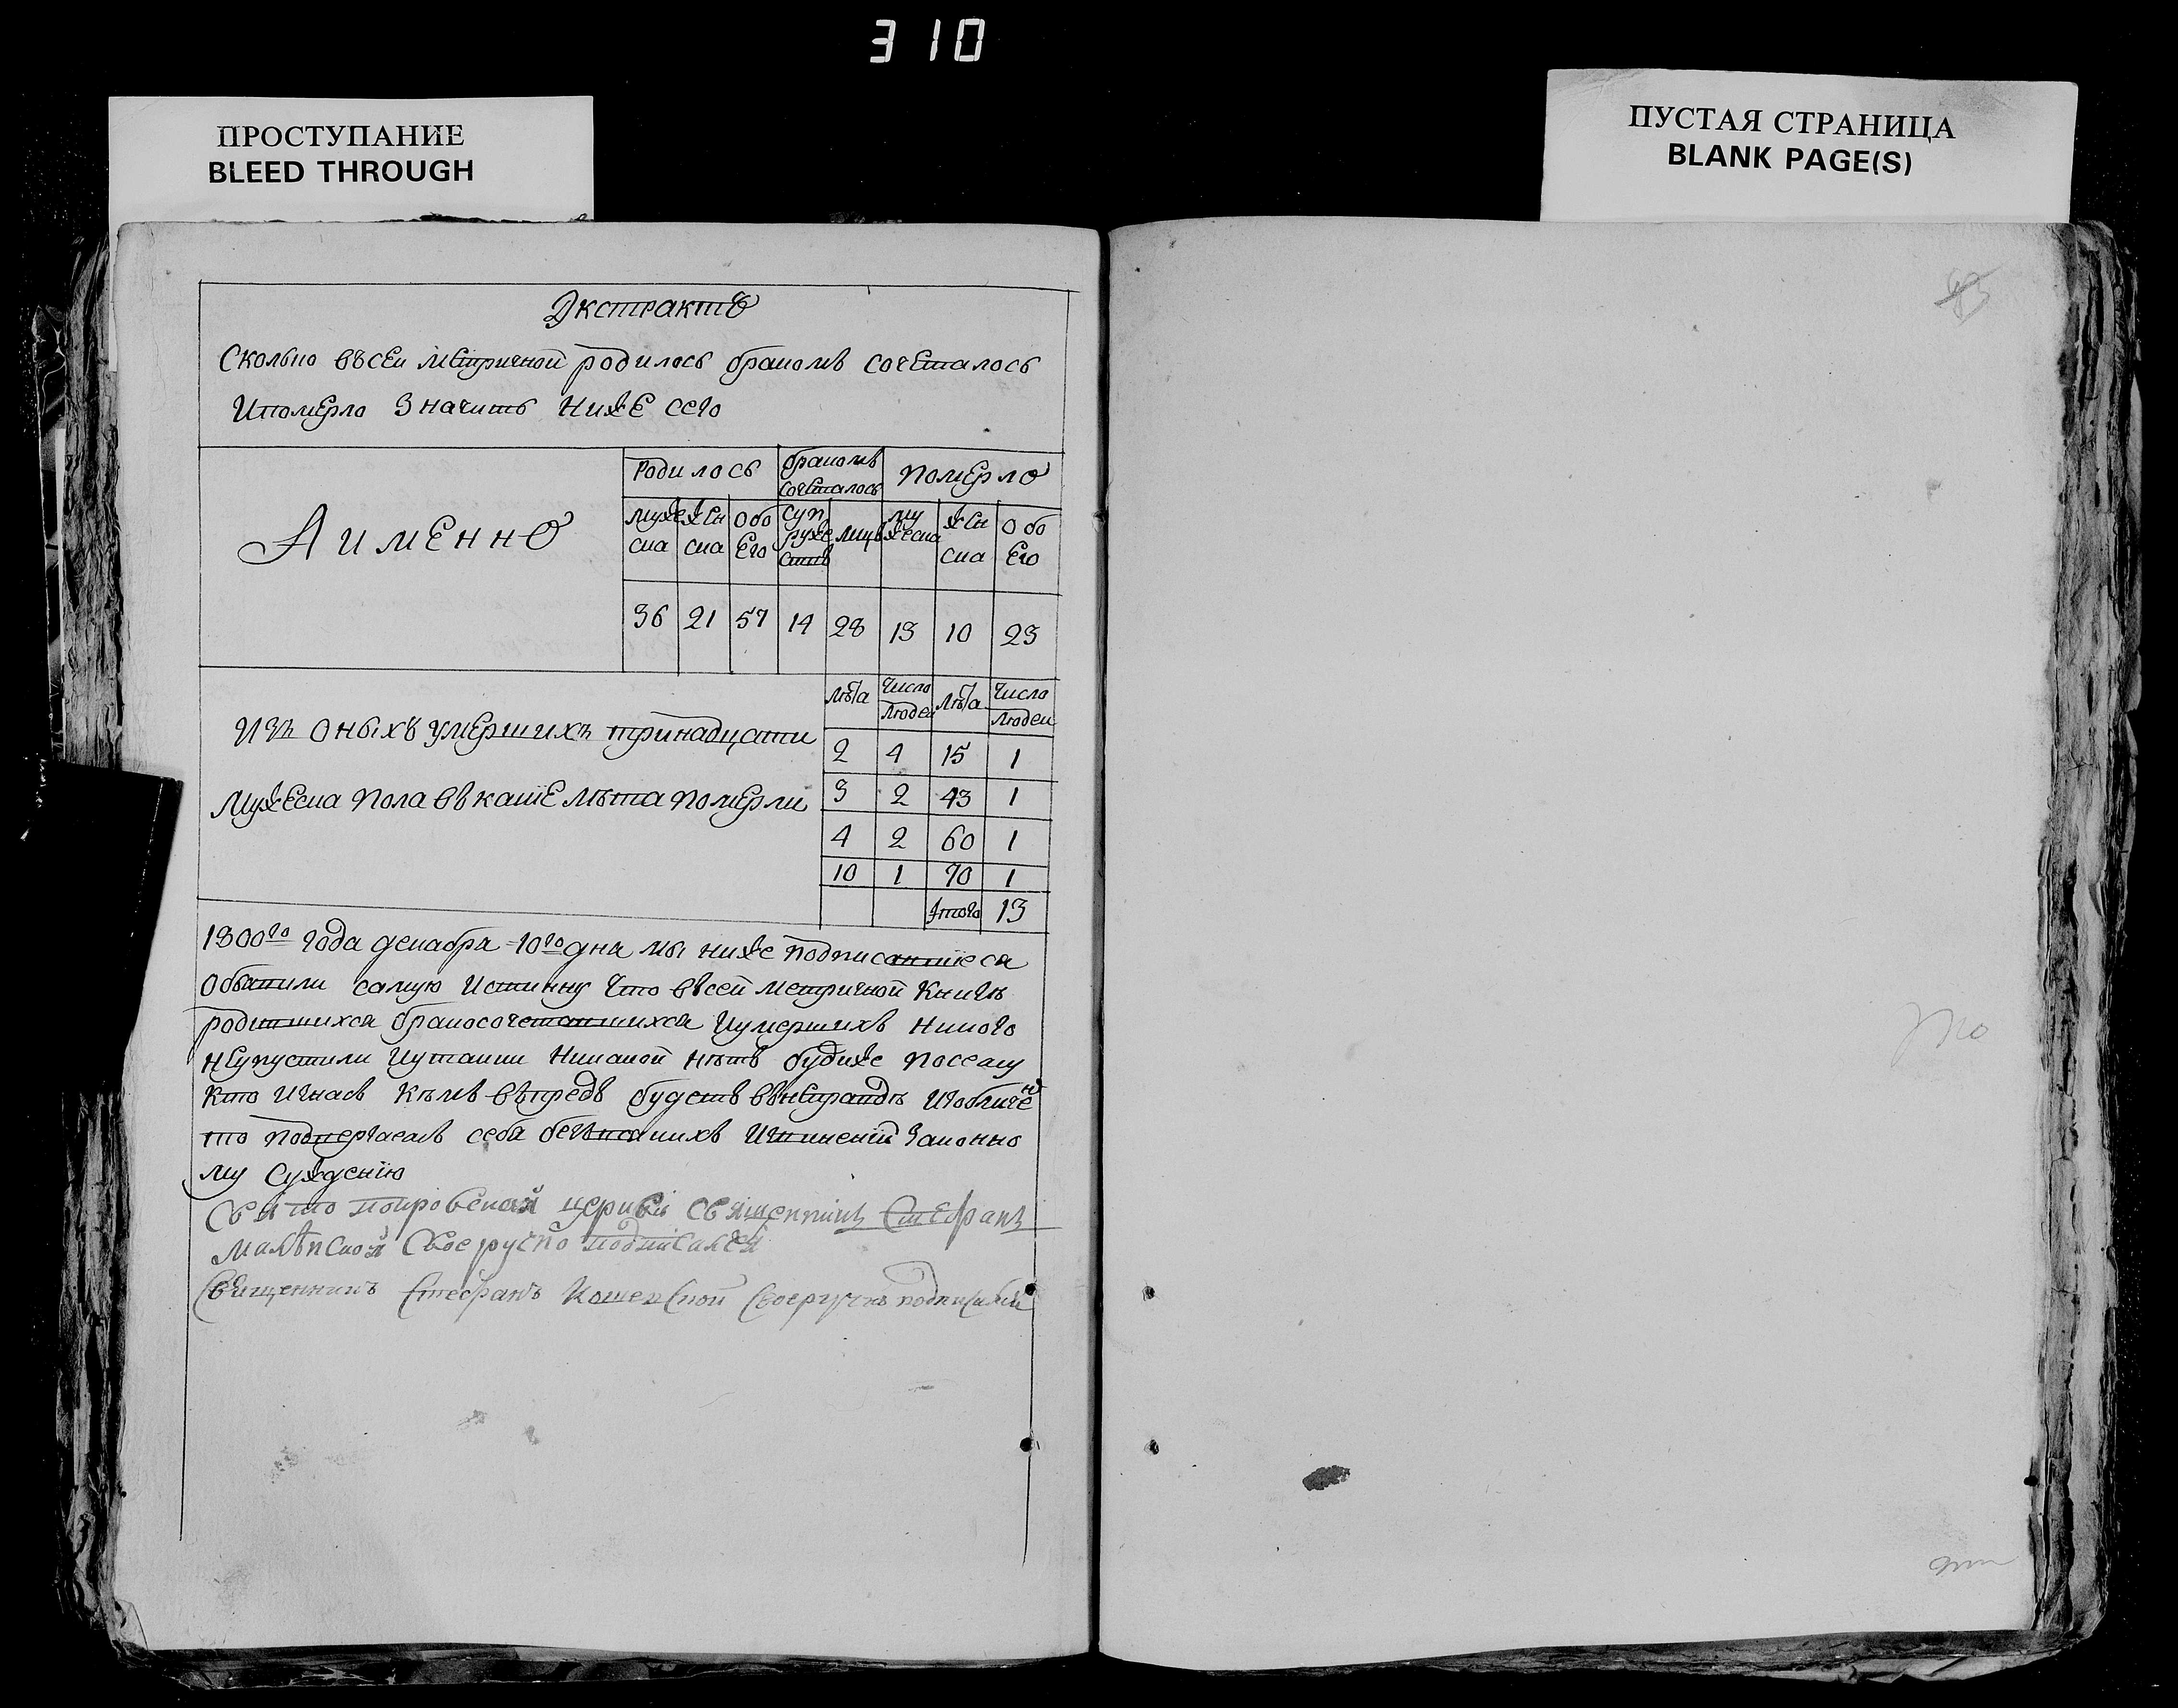 310
ПРОСТУПАНИЕ
BLEED THROUGH
ПУСТАЯ СТРАНИЦА
BLANK PAGE(S)
Экстрактъ
Сколько въсеи метричной родилось бракомъ сочеталось
Ипомерло значитъ ниже сего
Аименно
Родилось
бракомъ сочеталось
померло
мужеска
женска
Обоего
супружествъ
лицъ
мужеска
женска
Обоего
36 21 57 14 28 13 10 23
Изъ оныхъ умершихъ тринадцати
Мужеска пола въкаіе лѣта померли
лѣта Число Людей лѣта Число Людей
2 4 15 1
3 2 43 1
4 2 60 1
10 1 70 1
Итого 13
1800го года декабря 10го дня мы ниже подписавшіеся
Объявили самую Истинну Что въсей метричной Книгѣ
родившихся бракосочетавшихся Иумершихъ никого
Неупустили Иутайки Никакой нѣтъ будиже посему
Кто Изнасъ Кѣмъ въпредъ будетъ въНеправдѣ Изобличенъ
то подвергаемъ себя безъвсякихъ Извиненій Законно
му Сужденію
Свято покровской церкви священникъ Стефанъ
своеручно подписался
Священникъ Стефанъ своеручнѣ подписался